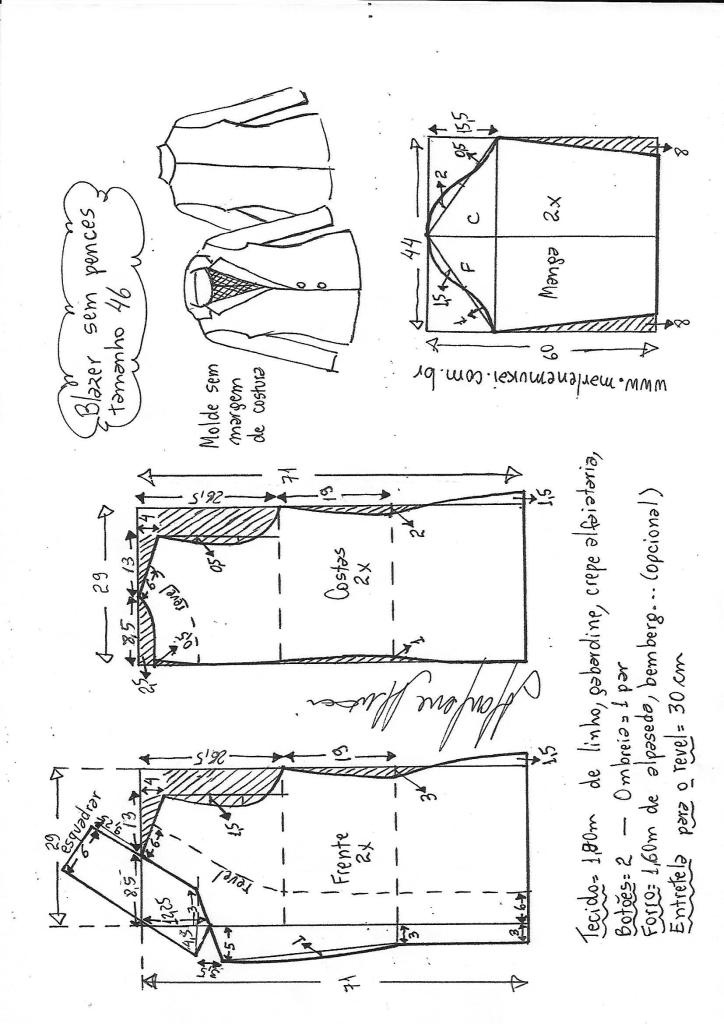 Blazer sem pences
tamanho 46
Molde sem
margem
de costura
44
15,5
0,5
2
C
F
1,5
1
Manga 2x
60
8
8
www.marlenemukai.com.br
71
29
26,5
19
4
13
8,5
6
revel
0,5
0,5
2,5
Costas
2x
2
1
1,5
71
29
esquadrar
9,25
6
26,5
19
4
13
8,5
6
12,25
1,5
revel
3
4,5
5
1
Frente
2x
3
3
3
6
1,5
Tecido= 1,80m de linho, gabardine, crepe alfaiataria,
Botões= 2 — Ombreia= 1 par
Forro= 1,60m de alpaseda, bemberg... (opcional)
Entretela para o revel= 30 cm